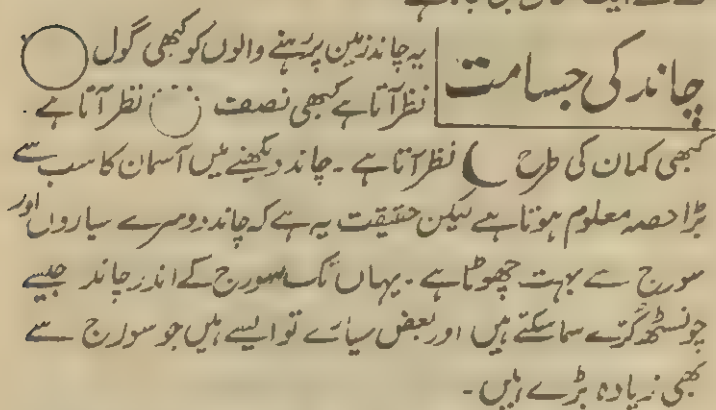 چاند کی جسامت
یہ چاند زمین پر رہنے والوں کو کبھی گول
نظر آتا ہے کبھی نصف نظر آتا ہے.
کبھی کمان کی طرح نظر آتا ہے ۔ چاند دیکھنے میں آسمان کا سب سے
بڑا حصہ معلوم ہوتا ہے لیکن حقیقت یہ ہے کہ چاند دوسرے سیاروں اور
سورج سے بہت چھوٹا ہے ۔ یہاں تک سورج کے اندر چاند جیسے
چونسٹھ کرّے سما سکتے ہیں اور بعض سیارے تو ایسے ہیں جو سورج سے
بھی زیادہ بڑے ہیں ۔